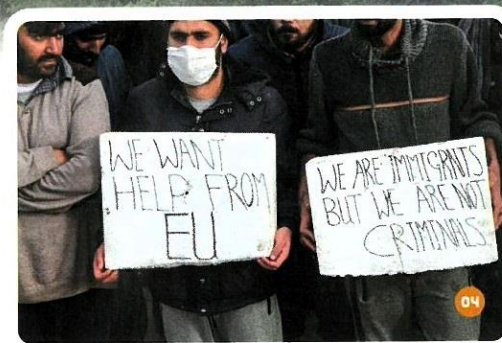 WE WANT
HELP FROM
EU
WE ARE IMMIGRANTS
BUT WE ARE NOT
CRIMINALS
04